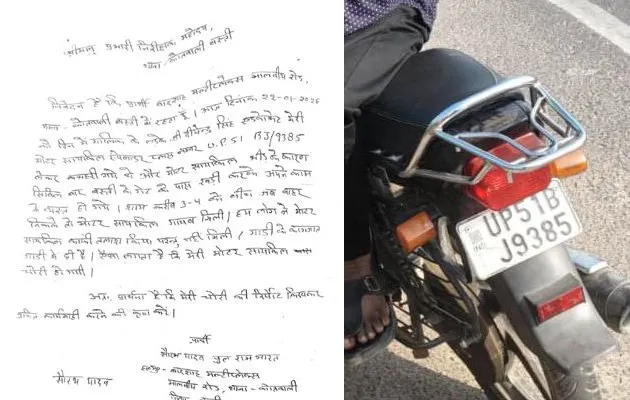 श्रीमान् प्रभारी निरीक्षक महोदय,
थाना - कोतवाली बस्ती
निवेदन है कि प्रार्थी बादशाह मल्टीप्लेक्स मालवीय रोड,
थाना - कोतवाली बस्ती में रहता है। आज दिनांक 22-01-2026
को मेरी
मोटर सायकिल स्प्लेन्डर प्लस नम्बर U.P51 BJ/9385
लेकर कचहरी गये थे और मोटर सायकिल भीड़ के कारण
सिविल बार बस्ती के गेट के पास खड़ी करके अपने काम
में चले गये। शाम करीब 3-4 के बीच जब बाहर
निकले तो मोटर सायकिल गायब मिली। हम लोग ने मोटर
सायकिल काफी तलाश किया परन्तु नहीं मिली। गाड़ी के कागजात
गाड़ी में ही है। ऐसा लगता है कि मेरी मोटर सायकिल
चोरी हो गयी।
अतः प्रार्थना है कि मेरी चोरी की रिपोर्ट लिखकर
उचित कार्यवाही करने की कृपा करें।
प्रार्थी
सौरभ यादव पुत्र राम भारत
बादशाह मल्टीप्लेक्स
मालवीय रोड, थाना - कोतवाली
सौरभ यादव
UP51B
J9385